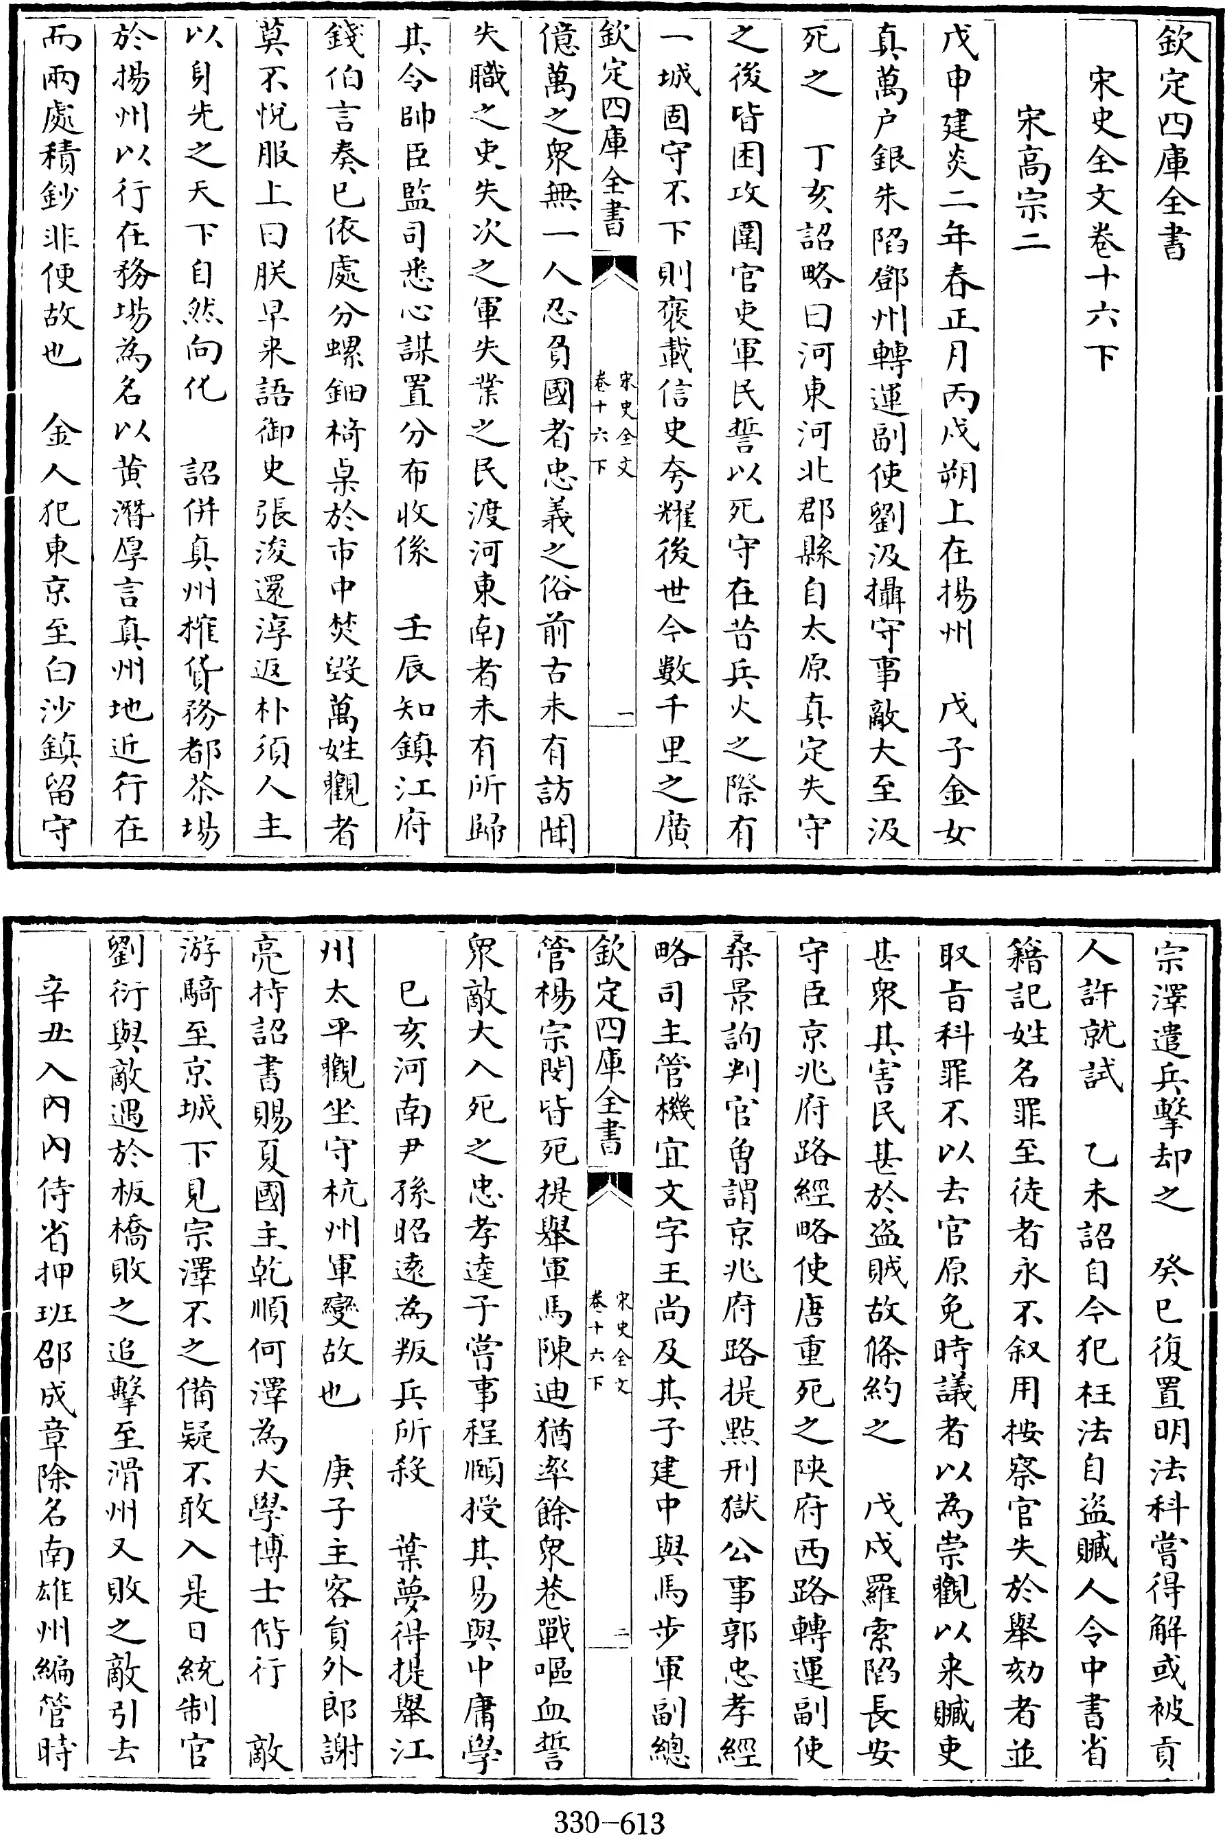 欽定四庫全書
宋史全文卷十六下
宋高宗二
戊申建炎二年春正月丙戌朔上在揚州　戊子金女
真萬户銀朱陷鄧州轉運副使劉汲攝守事敵大至汲
死之　丁亥詔略曰河東河北郡縣自太原真定失守
之後皆困攻圍官吏軍民誓以死守在昔兵火之際有
一城固守不下則褒載信史夸耀後世今數千里之廣
欽定四庫全書
宋史全文
卷十六下
一
億萬之衆無一人忍負國者忠義之俗前古未有訪聞
失職之吏失次之軍失業之民渡河東南者未有所歸
其令帥臣監司悉心謀置分布收係　壬辰知鎮江府
錢伯言奏已依處分螺鈿椅桌於市中焚毀萬姓觀者
莫不悅服上曰朕早来語御史張浚還淳返朴須人主
以身先之天下自然向化　詔併真州榷貨務都茶場
於揚州以行在務場為名以黄潛厚言真州地近行在
而兩處積鈔非便故也　金人犯東京至白沙鎮留守
宗澤遣兵擊却之　癸巳復置明法科嘗得解或被貢
人許就試　乙未詔自今犯枉法自盗贓人令中書省
籍記姓名罪至徒者永不叙用按察官失於舉劾者並
取旨科罪不以去官原免時議者以為崇觀以来贓吏
甚衆其害民甚於盗賊故條約之　戊戌羅索陷長安
守臣京兆府路經略使唐重死之陜府西路轉運副使
桑景詢判官曾謂京兆府路提點刑獄公事郭忠孝經
略司主管機宜文字王尚及其子建中與馬步軍副總
欽定四庫全書
宋史全文
卷十六下
二
管楊宗閔皆死提舉軍馬陳迪猶率餘衆巷戰嘔血誓
衆敵大入死之忠孝逵子嘗事程頤授其易與中庸學
己亥河南尹孫昭遠為叛兵所殺　葉夢得提舉江
州太平觀坐守杭州軍變故也　庚子主客員外郎謝
亮持詔書賜夏國主乾順何澤為大學博士偕行　敵
游騎至京城下見宗澤不之備疑不敢入是日統制官
劉衍與敵遇於板橋敗之追擊至滑州又敗之敵引去
辛丑入内内侍省押班邵成章除名南雄州編管時
330-613